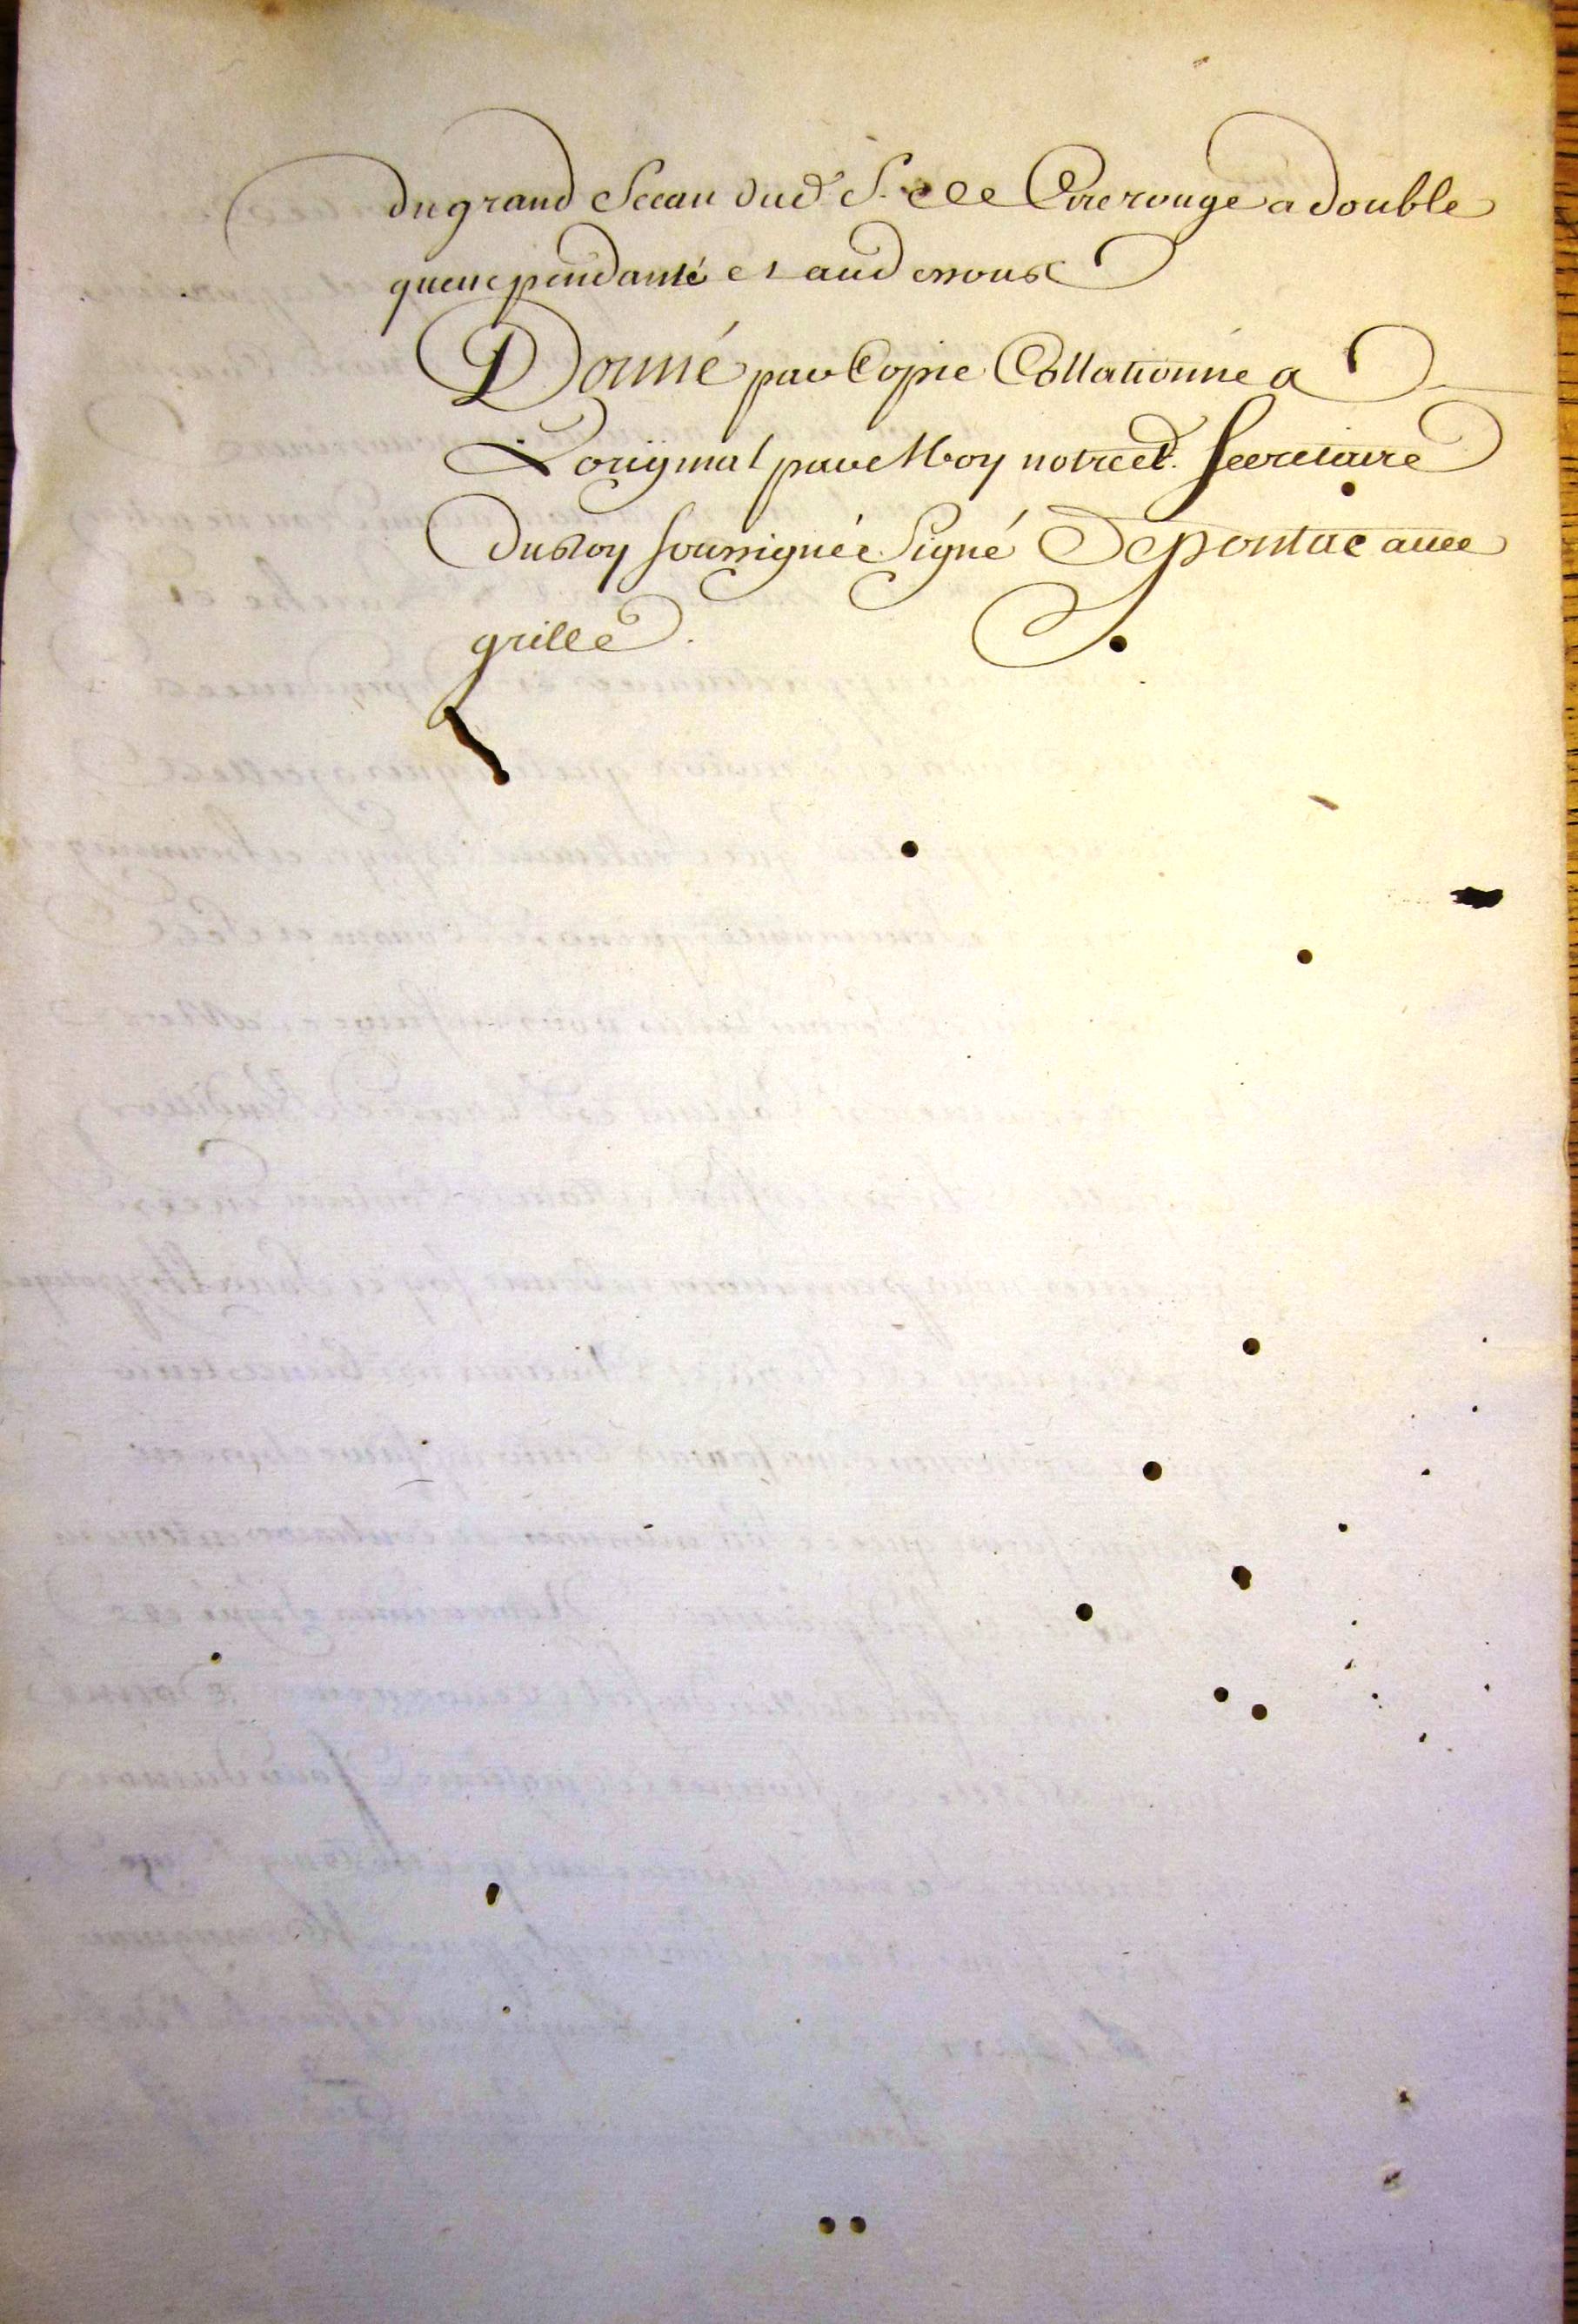 du grand Sceau dud. S. de Cire rouge a double
queue pendante et aud essous
Donné par Copie Collationnée a
L'origînal par Moy notre et Secretaire
du Roy soussignée Signé Depontac avec
grille.